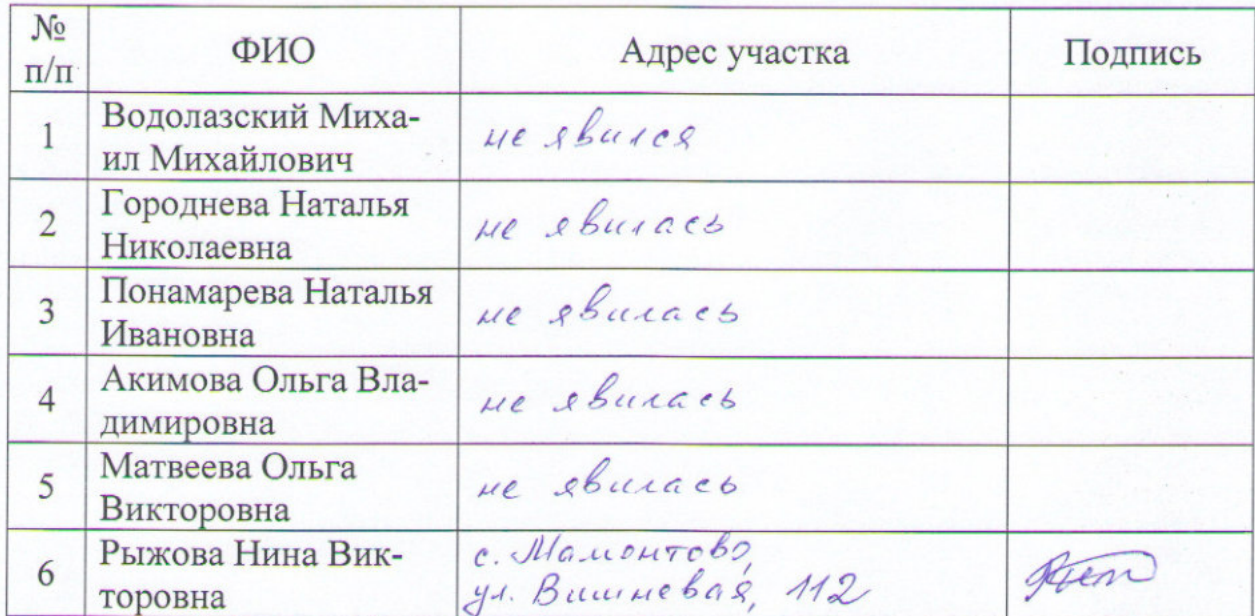 № п/п ФИО Адрес участка Подпись
1 Водолазский Миха-
ил Михайлович не явился
2 Городнева Наталья
Николаевна не явилась
3 Понамарева Наталья
Ивановна не явилась
4 Акимова Ольга Вла-
димировна не явилась
5 Матвеева Ольга
Викторовна не явилась
6 Рыжова Нина Вик- с. Мамонтово,
торовна ул. Вишневая, 112